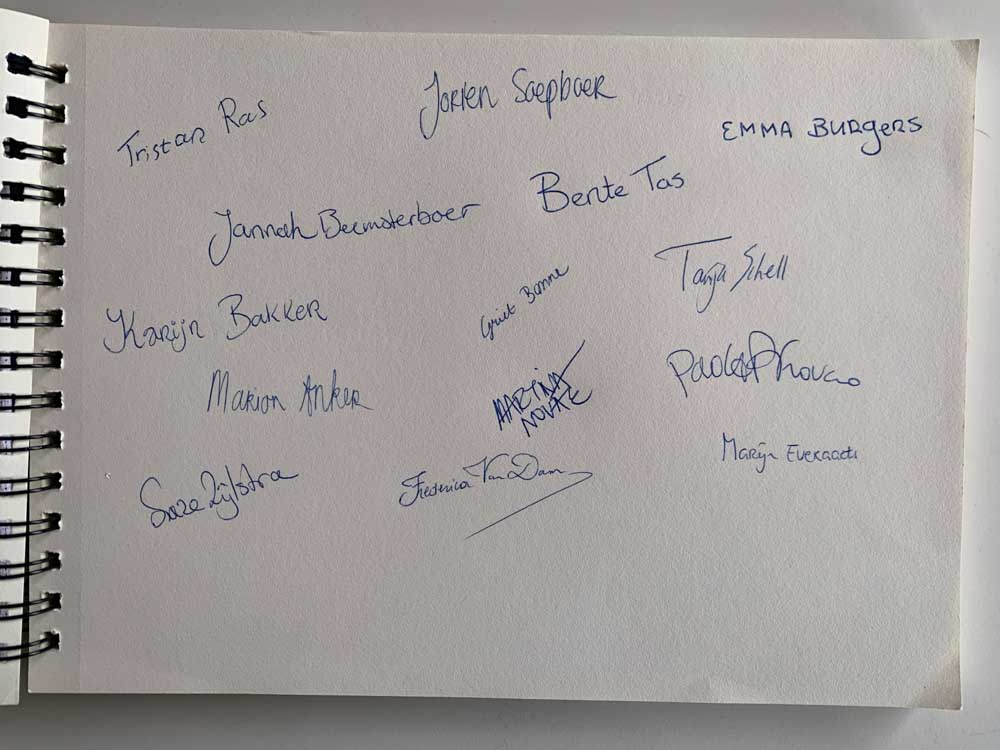 Jorien Soepboer
Tristan Ras
EMMA BURGERS
Bente Tas
Jannah Beemsterboer
Tanja Schell
Griet Bonne
Karijn Bakker
Marion Anker
MARTINA
NOVAK
Marijn Everaarts
Frederica Van Dam